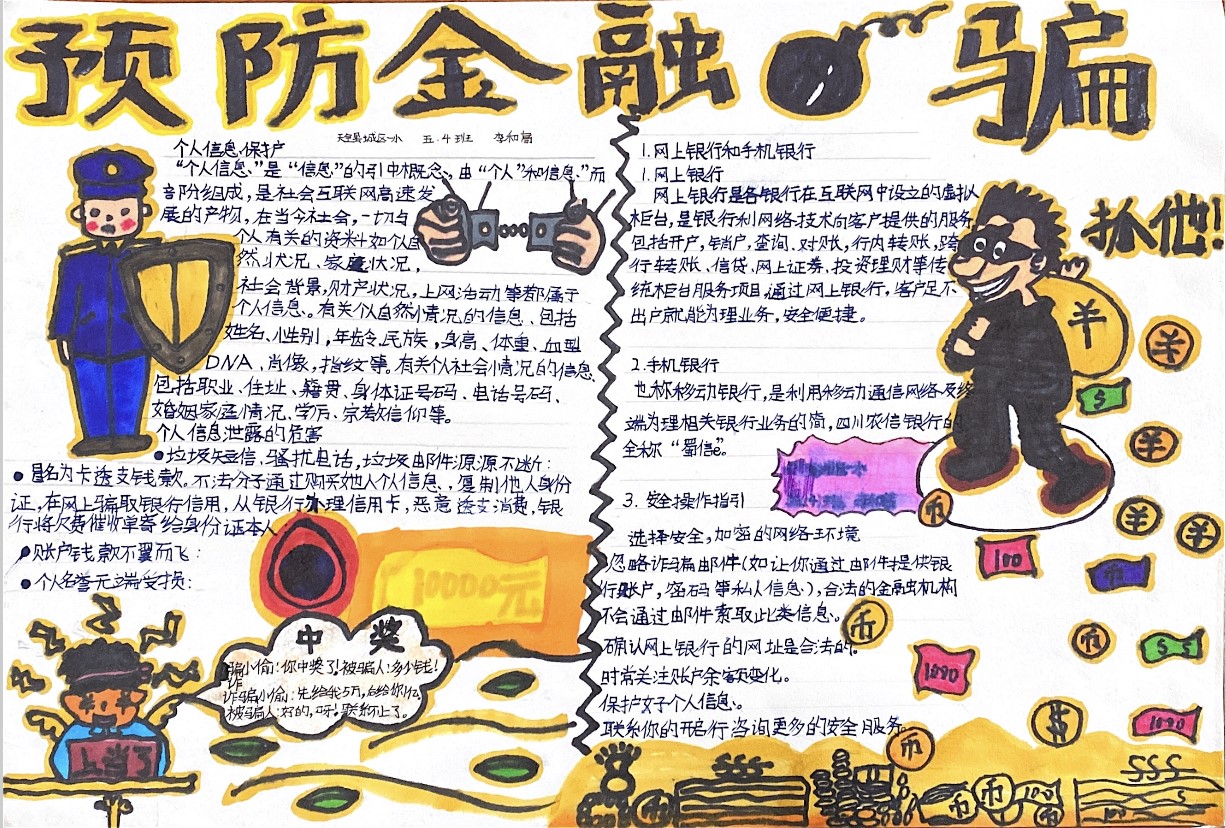 预防金融骗
五.4班 李和局
个人信息保护
“个人信息”是“信息”的引申概念,由“个人”和信息”而
音阶组成,是社会互联网高速发
展的产物,在当今社会,一切与
个人有关的资料如个自
然状况、家庭状况,
社会背景,财产状况,上网活动等都属于
个人信息。有关个人自然情况的信息、包括
姓名、性别,年龄、民族,身高、体重、血型
DNA、肖像,指纹等。有关个人社会情况的信息
包括职业、住址、籍贯、身体证号码、电话号码、
婚姻家庭情况、学历、宗教信仰等。
个人信息泄露的危害
●垃圾短信、骚扰电话,垃圾邮件源源不断:
●冒名办卡透支钱款。不法分子通过购买他人个人信息、,复制他人身份
证,在网上骗取银行信用,从银行办理信用卡,恶意透支消费,银
行将欠费催收单寄给身份证本人
●账户钱款不翼而飞:
●个人名誉无端受损:
10000元
中奖
骗小偷:你中奖了!被骗人:多少钱!
诈
诈骗小偷:先给我5万,后给你1亿
被骗人:好的,呀。联系不上了。
上当了
1.网上银行和手机银行
1.网上银行
网上银行是各银行在互联网中设立的虚拟
柜台,是银行利网络技术向客户提供的服务
包括开户,销户,查询、对账,行内转账,跨
行转账、信贷、网上证券,投资理财等传
统柜台服务项目,通过网上银行,客户足不
出户就能办理业务,安全便捷。
2.手机银行
也称移动银行,是利用移动通信网络及终
端办理相关银行业务的简,四川农信银行的
全称“蜀信”。
3.安全操作指引
选择安全,加密的网络环境
忽略诈骗邮件(如让你通过邮件提供银
行账户,密码等私人信息),合法的金融机构
不会通过邮件索取此类信息。
确认网上银行的网址是合法的。
时常关注账户余额变化。
保护好个人信息。
联系你的开启行咨询更多的安全服务。
抓他!
羊
羊
$
羊
币
羊
羊
100
币
币
币
$ $
1000
$
1000
币
币
币
100
币
$